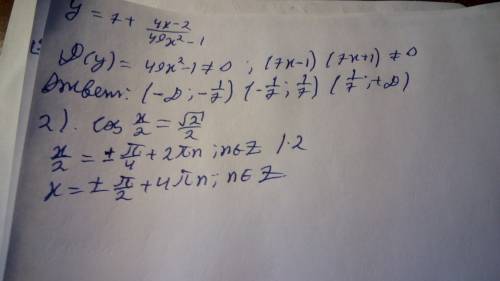 y = 7 + \frac{4x-2}{49x²-1}
D(y) = 49x²-1 ≠ 0 ; (7x-1) (7x+1) ≠ 0
Ответ: (-∞; -\frac{1}{7}) (-\frac{1}{7}; \frac{1}{7}) (\frac{1}{7}; +∞)
2). cos \frac{x}{2} = \frac{√2}{2}
\frac{x}{2} = ± \frac{π}{4} + 2πn ; n∈Z | · 2
x = ± \frac{π}{2} + 4πn ; n∈Z